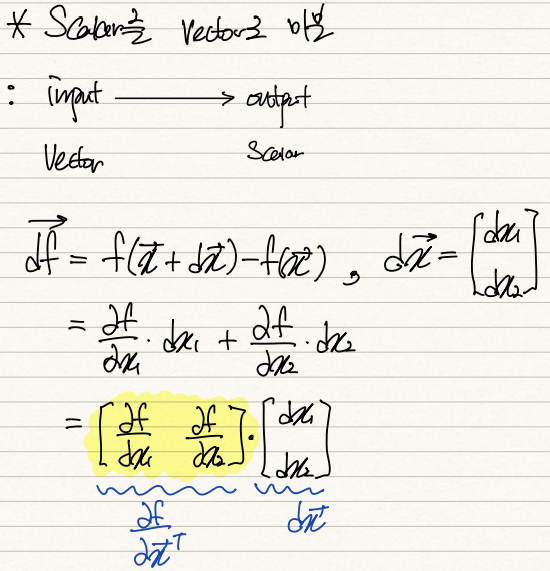 * Scalar를 vector로 미분
: input ⟶ output
Vector Scalar
\overrightarrow{df} = f(\vec{x} + d\vec{x}) - f(\vec{x}) , d\vec{x} = \begin{bmatrix} dx_1 \\ dx_2 \end{bmatrix}
= \frac{∂f}{∂x_1} · dx_1 + \frac{∂f}{∂x_2} · dx_2
= \begin{bmatrix} \frac{∂f}{∂x_1} & \frac{∂f}{∂x_2} \end{bmatrix} · \begin{bmatrix} dx_1 \\ dx_2 \end{bmatrix}
\frac{∂f}{∂\vec{x}^T} d\vec{x}